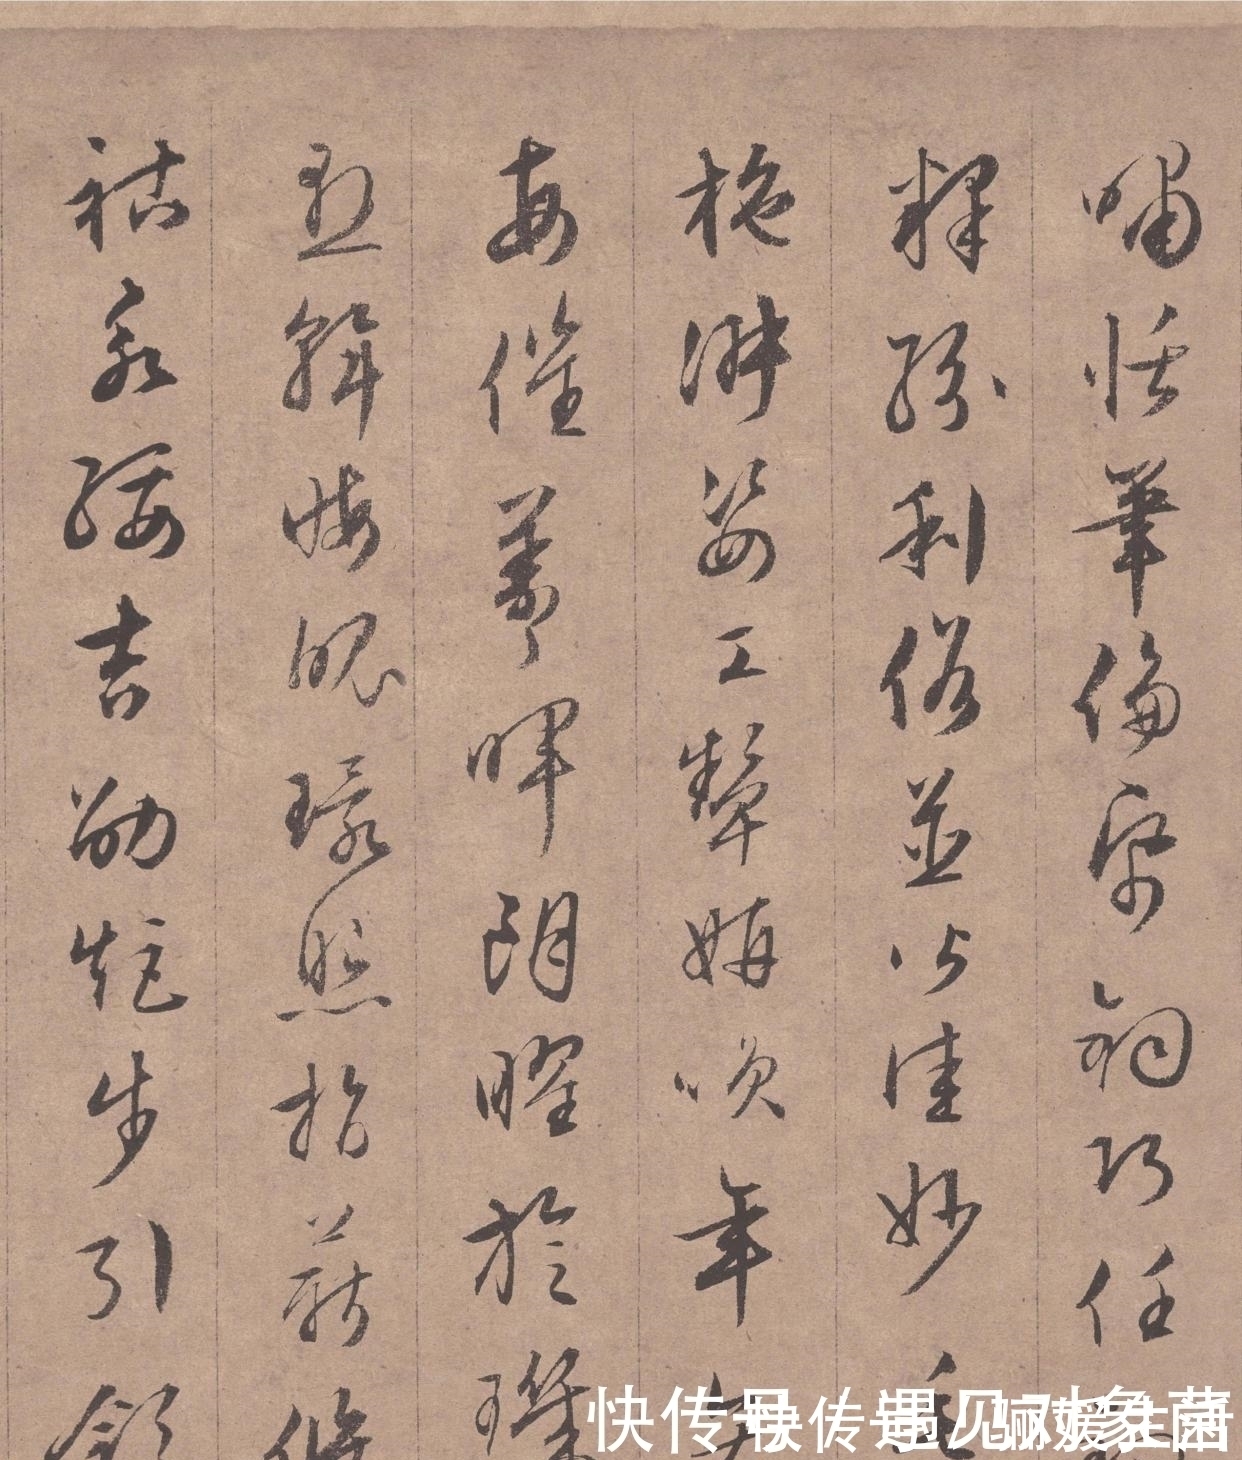 嘯恬筆倫紙鈞巧任
釋紛利俗並皆佳妙毛
施淑姿工顰妍咲年矢
每催羲暉朗曜旋璣
懸斡晦魄環照指薪修
祜永綏吉劭矩步引領
快传号 遇见大象菌